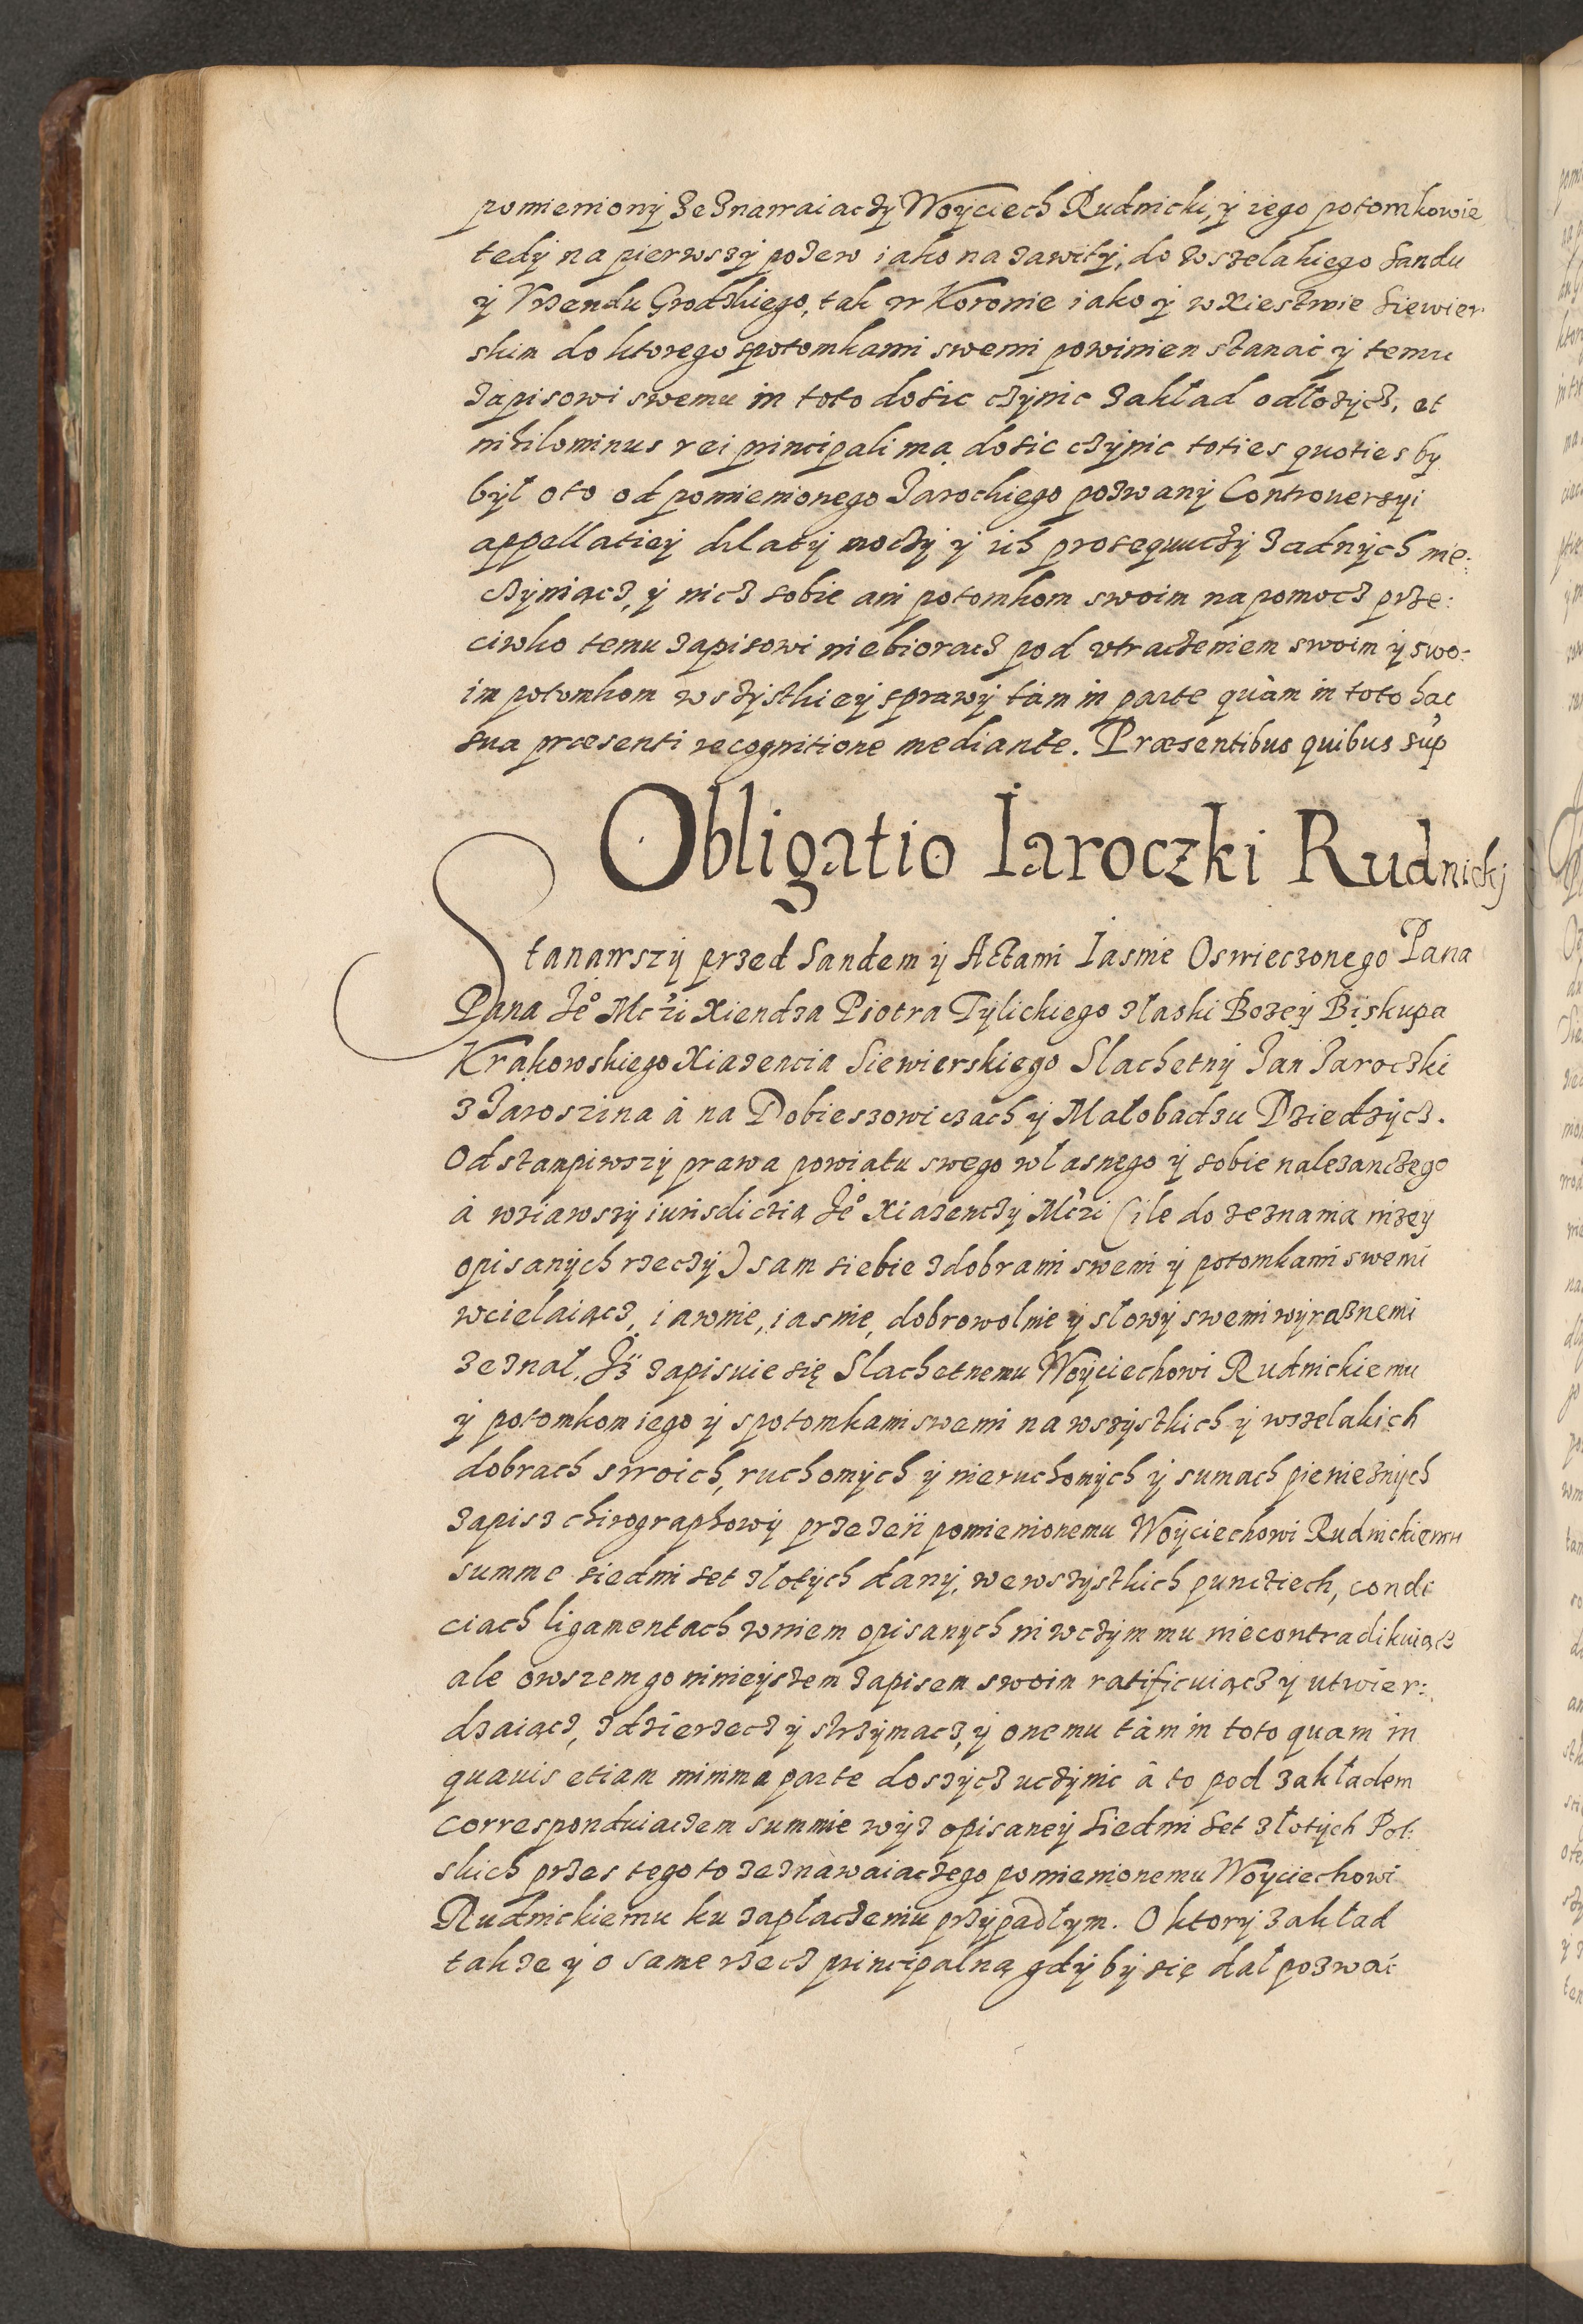 pomieniony zeznawaiaczy Woyciech Rudnicki, y iego potomkowie
tedy na pierwszy pozew iako na zawity, do wszelakiego Sandu
y Vrzendu Grodzkiego, tak w Koronie iako y w Xiestwie Siewier
skim do ktorego spotomkami swemi powinien stanać y temu
zapisowi swemu in toto dosic czynic zakład odłozycz, et
nihilominus rei principali ma dosic czynic toties quoties by
był oto od pomienionego Jarockiego pozwany Controuersyi
appellatiey dilaty moczy y ich prosequuczy zadnych nie:
czyniącz, y nicz sobie ani potomkom swoim na pomocz prze:
ciwko temu zapisowi niebioracz pod vtraczeniem swoim y swo:
im potomkom wszystkiey sprawy tàm in parte quàm in toto hac
sua præsenti recognitione mediante. Præsentibus quibus sup
Obligatio Iaroczki Rudnickj
Stanawszy przed Sandem y Actami Iasnie Oswieczonego Pana
Pana Jeo Mczi Xiendza Piotra Tylickiego złaski Bozey Biskupa
Krakowskiego Xiazencia Siewierskiego Slachetny Jan Jaroczki
z Jaroszina à na Dobieszowiczach y Małobadzu Dziedzycz.
Odstanpiwszy prawa powiatu swego własnego y sobie nalezanczego
à wziawszy iurisdictią Jeo Xiazenczy Mczi (ile do zeznania nizey
opisanych rzeczy) sam siebie zdobrami swemi y potomkami swemi
wcielaiącz, iawnie, iasnie, dobrowolnie y słowy swemi wyraznemi
zeznał, Jż zapisuie się Slachetnemu Woyciechowi Rudnickiemu
y potomkom iego y spotomkami swemi na wszystkich y wszelakich
dobrach swoich, ruchomych y nieruchomych y sumach pienieznych
zapisz chirographowy przezeń pomienionemu Woyciechowi Rudnickiemu
summe siedmi set złotych dany, we wszystkich puncziech, condi
ciach ligamentach wniem opisanych niwczym mu niecontradikuiącz
ale owszem go ninieyszem zapisem swoim ratificuiącz y utwier:
dzaiącz, zdzierzecz y strzymacz, y onemu tàm in toto quam in
quauis etiam minima parte doszycz uczynic à to pod zakładem
correspondviaczem summie wyz opisaney Siedmi Set złotych Pol:
skich przes tegoto zeznawaiaczego pomienionemu Woyciechowi
Rudnickiemu ku zapłaczeniu przypadłym. O ktory zakład
takze y o same rzecz principalną gdyby się dał pozwać